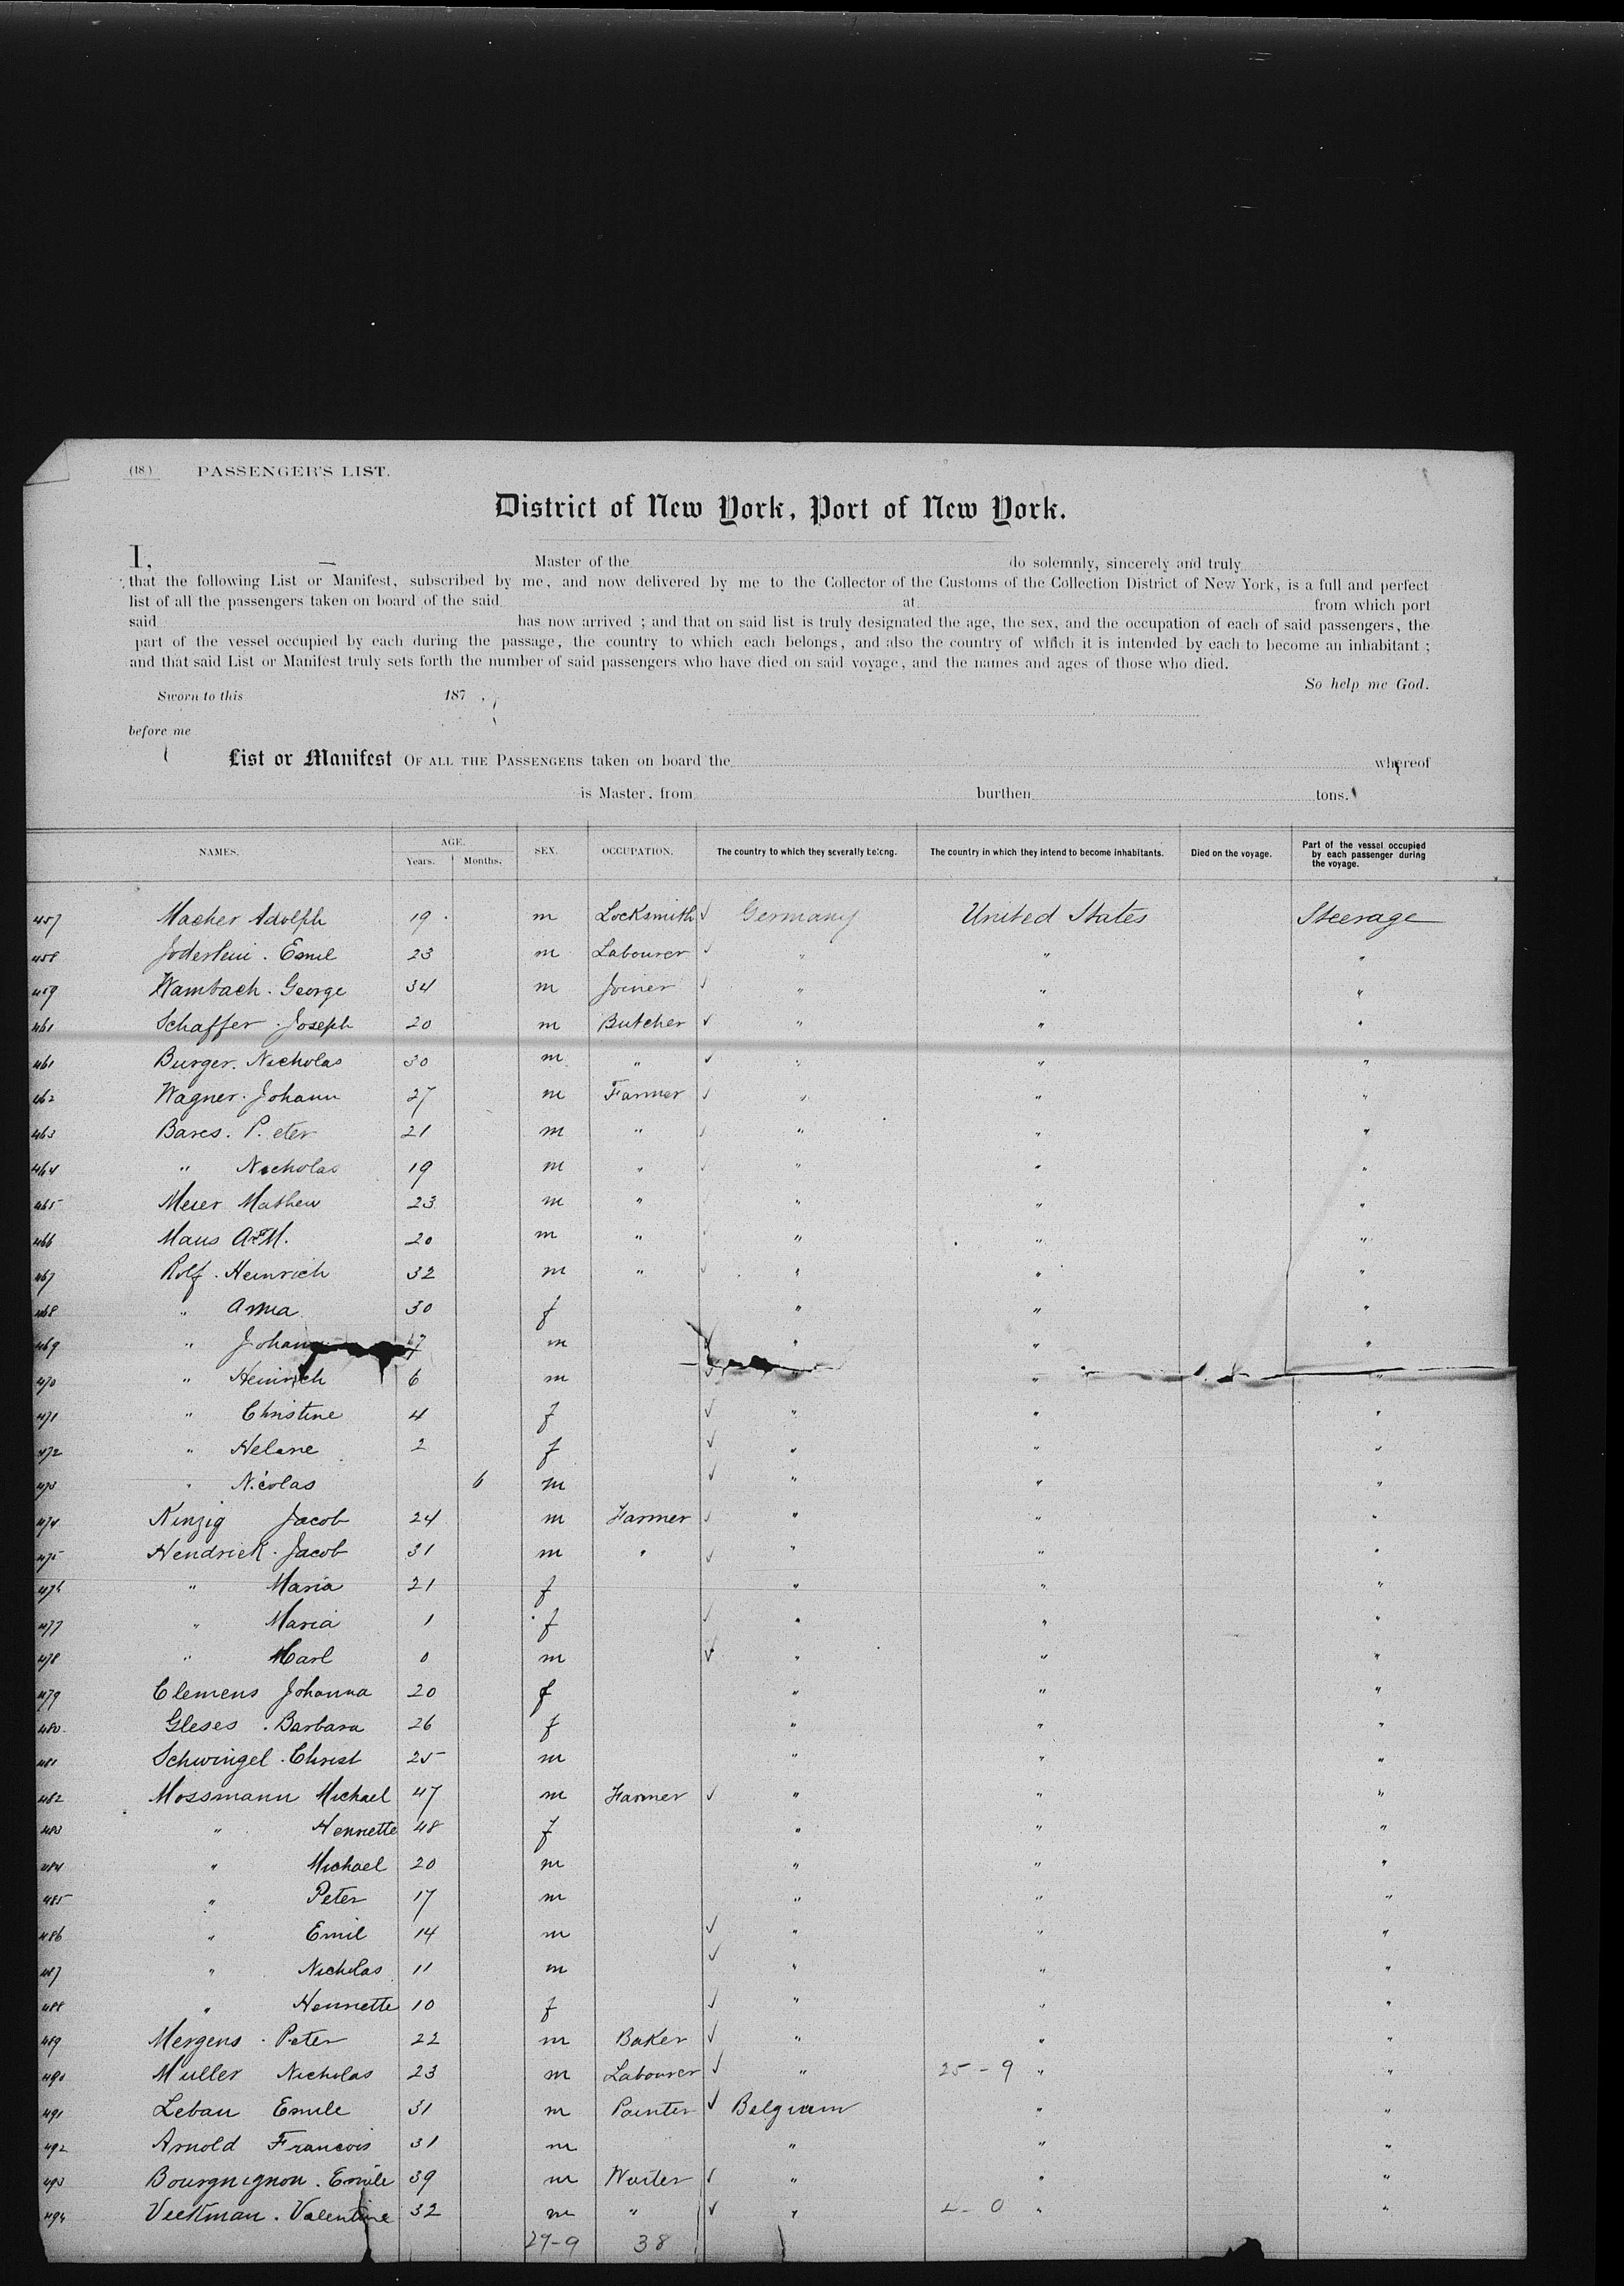 (18.) PASSENGER'S LIST.
District of New York, Port of New York.
I, — Master of the do solemnly, sincerely and truly
that the following List or Manifest, subscribed by me, and now delivered by me to the Collector of the Customs of the Collection District of New York, is a full and perfect
list of all the passengers taken on board of the said at from which port
said has now arrived ; and that on said list is truly designated the age, the sex, and the occupation of each of said passengers, the
part of the vessel occupied by each during the passage, the country to which each belongs, and also the country of which it is intended by each to become an inhabitant ;
and that said List or Manifest truly sets forth the number of said passengers who have died on said voyage, and the names and ages of those who died.
So help me God.
Sworn to this 187 .
before me
List or Manifest OF ALL THE PASSENGERS taken on board the whereof
is Master, from burthen tons.
NAMES. AGE. Years. Months. SEX. OCCUPATION. The country to which they severally belong. The country in which they intend to become inhabitants. Died on the voyage. Part of the vessel occupied by each passenger during the voyage.
457 Macher Adolph 19 m Locksmith ✓ Germany United States Steerage
458 Joderlein . Emil 23 m Labourer ✓ " " "
459 Wambach . George 34 m Joiner ✓ " " "
461 Schaffer . Joseph 20 m Butcher ✓ " " "
461 Burger . Nicholas 30 m " ✓ " " "
462 Wagner . Johann 27 m Farmer ✓ " " "
463 Bares . P. eter 21 m " ✓ " " "
464 " Nicholas 19 m " ✓ " " "
465 Meier Mathew 23 m " " " "
466 Maus 20 m " " " "
467 Rolf . Heinrich 32 m " ✓ " " "
468 " Anna 30 f " " "
469 " Johann m ✓ " " "
470 " Heinrich 6 m ✓ " " "
471 " Christine 4 f ✓ " " "
472 " Helane 2 f ✓ " " "
473 " Nicolas 6 m ✓ " " "
474 Kinzig Jacob 24 m Farmer ✓ " " "
475 Hendrick . Jacob 31 m " ✓ " " "
476 " Maria 21 f " " "
477 " Maria 1 f ✓ " " "
478 " Karl 0 m ✓ " " "
479 Clemens Johanna 20 f " " "
480 Gleses . Barbara 26 f " " "
481 Schwingel . Christ 25 m " " "
482 Mossmann Michael 47 m Farmer ✓ " " "
483 " Henriette 48 f " " "
484 " Michael 20 m " " "
485 " Peter 17 m " " "
486 " Emil 14 m ✓ " " "
487 " Nicholas 11 m ✓ " " "
488 " Henriette 10 f ✓ " " "
489 Mergens . Peter 22 m Baker ✓ " " "
490 Muller Nicholas 23 m Labourer ✓ " 25 - 9 " "
491 Lebau Emile 31 m Painter ✓ Belgium " "
492 Arnold Francois 31 m " " "
493 Bourguignon . Emile 39 m Waiter ✓ " " "
494 Veekman . Valentine 32 m " ✓ " 4 - 0 " "
29-9 38